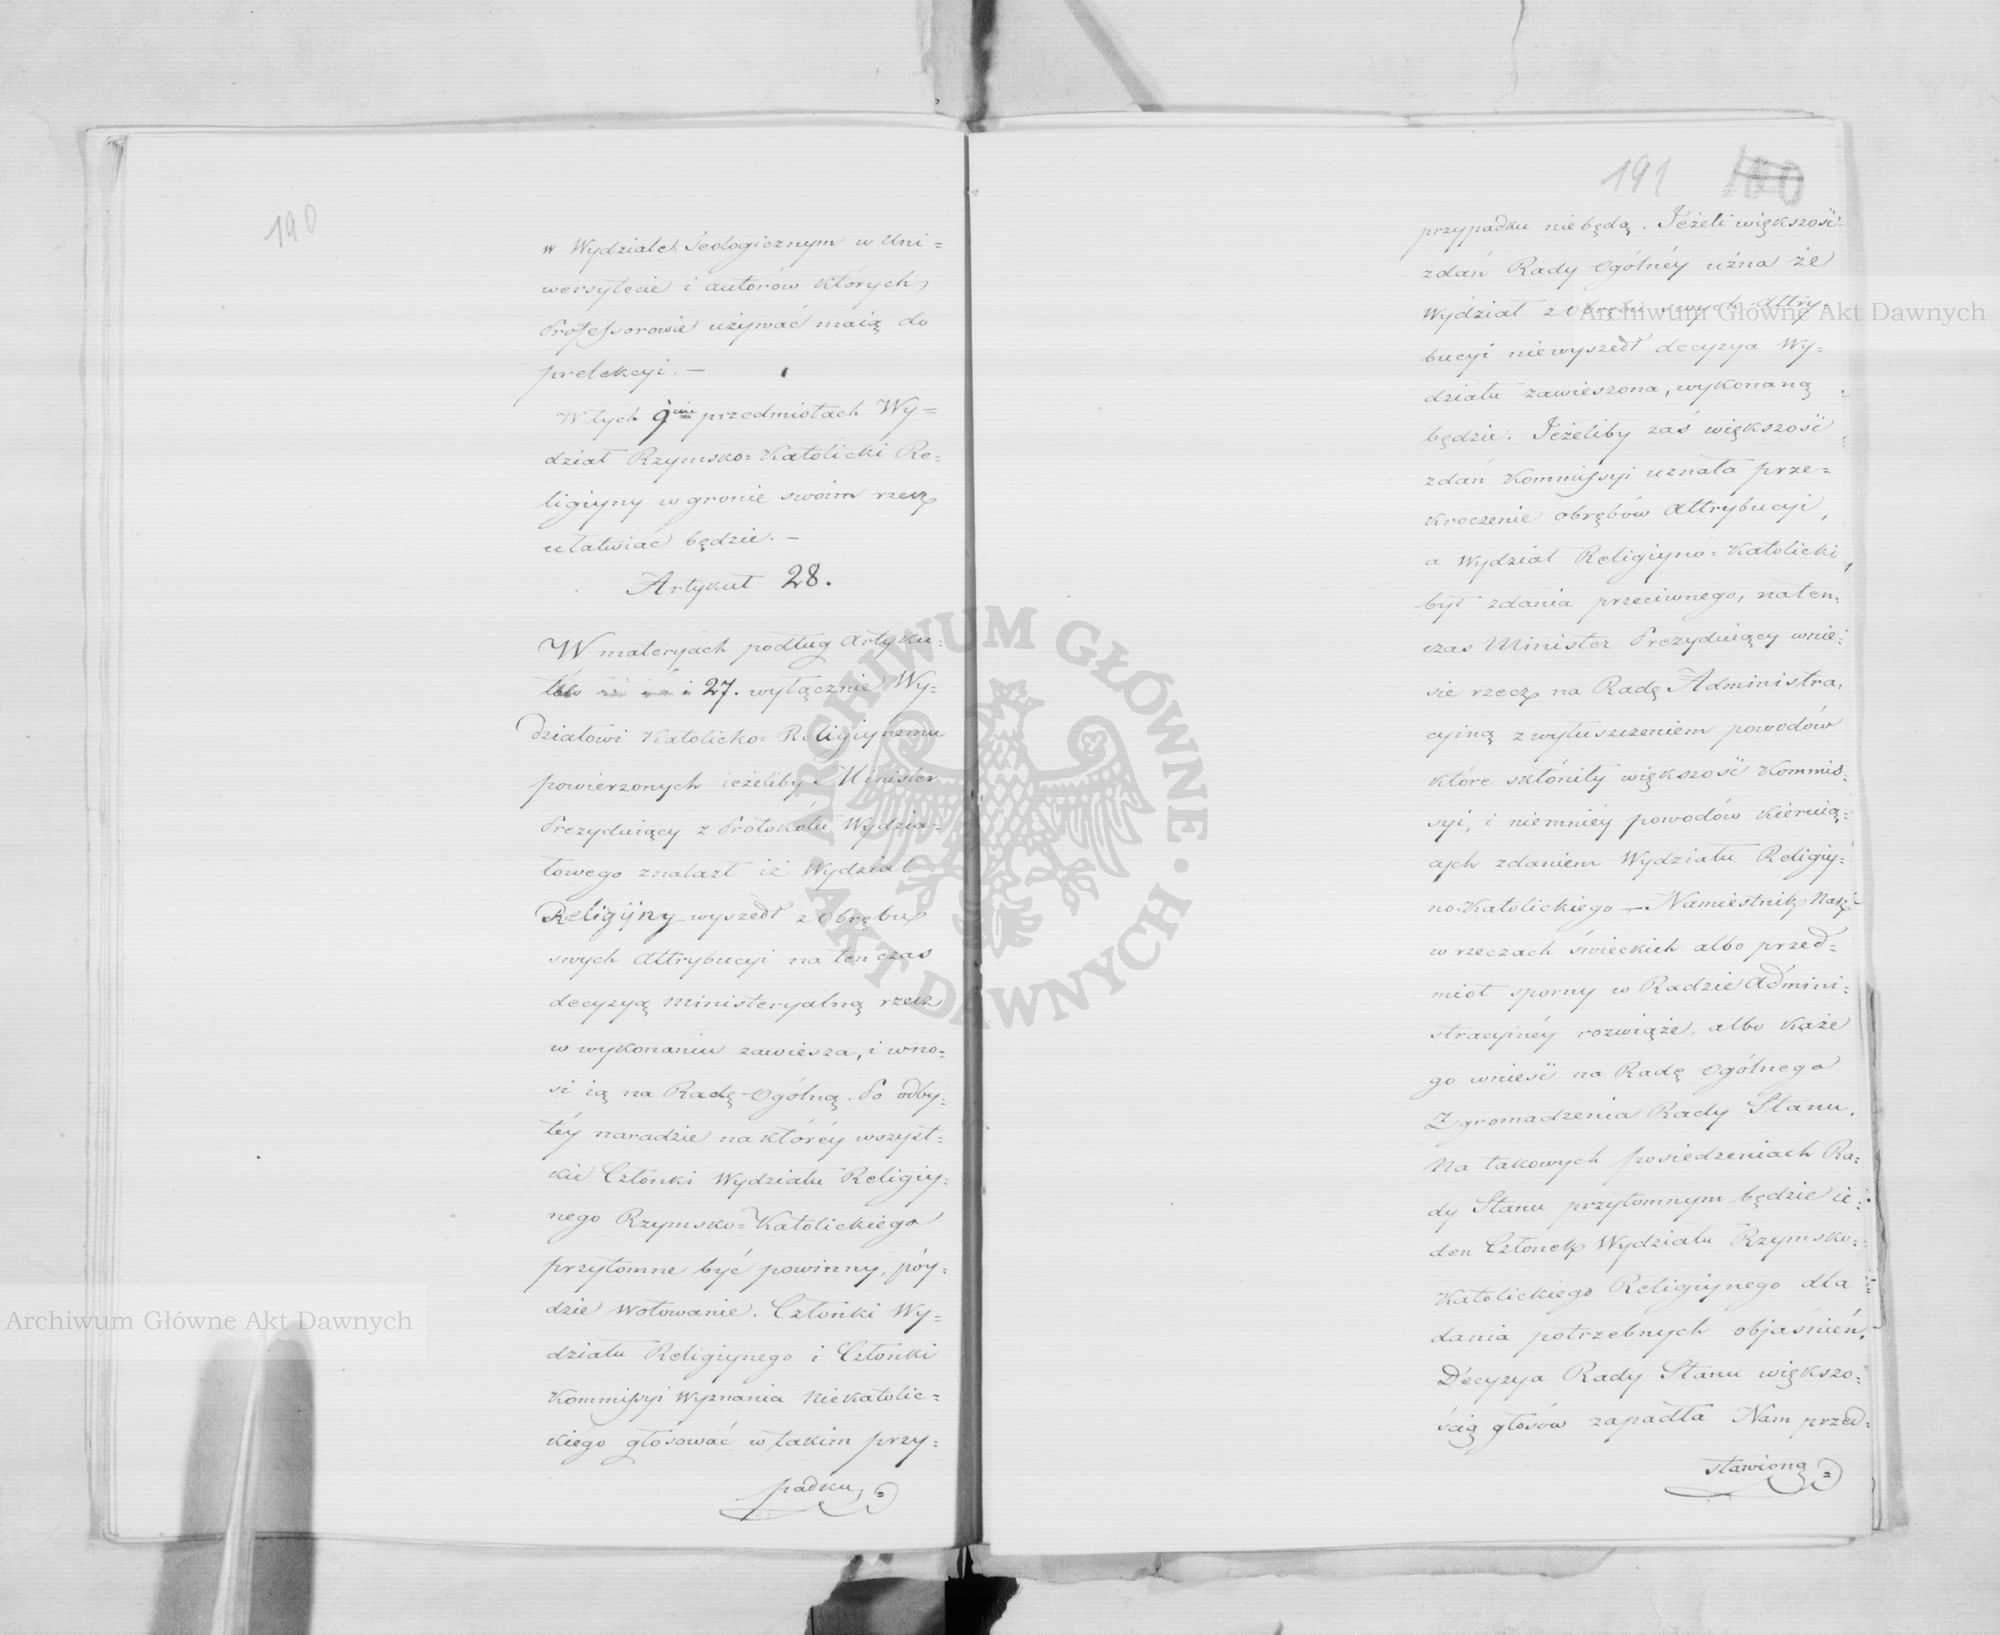 190
w Wydziale Teologicznym w Uni=
wersytecie i autorów których
Professorowie używać maią do
prelekcyi. —
W tych 9ciu przedmiotach Wy=
dział Rzymsko=Katolicki Re=
ligiyny w gronie swoim rzecz
ułatwiać będzie. —
Artykuł 28.
W materyach podług Artyku=
łów i 27. wyłącznie Wy=
działowi Katolicko=Religiynemu
powierzonych ieżeliby Minister
Prezyduiący z Protokołu Wydzia=
łowego znalazł iż Wydział
Religijny wyszedł z obrębu
swych Attrybucyi na ten czas
decyzyą Ministeryalną rzecz
w wykonaniu zawiesza, i wno=
si ią na Radę Ogólną. Po odby=
téy naradzie na któréy wszyst=
kie Członki Wydziału Religiy=
nego Rzymsko=Katolickiego
przytomne być powinny, póy=
dzie wotowanie. Członki Wy=
działu Religiynego i Członki
Kommissyi Wyznania Niekatolic=
kiego głosować w takim przy=
padku
191 180
przypadku niebędą. Jeżeli większość
zdań Rady Ogólnéy uzna że
Wydział z obrębu swych Attry=
bucyi niewyszedł decyzya Wy=
działu zawieszona, wykonaną
będzie. Jeżeliby zaś większość
zdań Kommissyi uznała prze=
kroczenie obrębów Attrybucyi,
a Wydział Religiyno=Katolicki
był zdania przeciwnego, naten=
czas Minister Prezyduiący wnie=
sie rzecz na Radę Administra=
cyiną z wyłuszczeniem powodów
które skłoniły większość Kommis=
syi, i niemniéy powodów kieruią=
cych zdaniem Wydziału Religiy=
no=Katolickiego — Namiestnik Nasz
w rzeczach świeckich albo przed=
miot sporny w Radzie Admini=
stracyinéy rozwiąże, albo każe
go wnieść na Radę Ogólnego
Zgromadzenia Rady Stanu.
Na takowych posiedzeniach Ra=
dy Stanu przytomnym będzie ie=
den Członek Wydziału Rzymsko=
Katolickiego Religiynego dla
dania potrzebnych objaśnień.
Decyzya Rady Stanu większo=
ścią głosów zapadła Nam przed=
stawioną
Archiwum Główne Akt Dawnych
Archiwum Główne Akt Dawnych
ARCHIWUM GŁÓWNE · AKT DAWNYCH ·